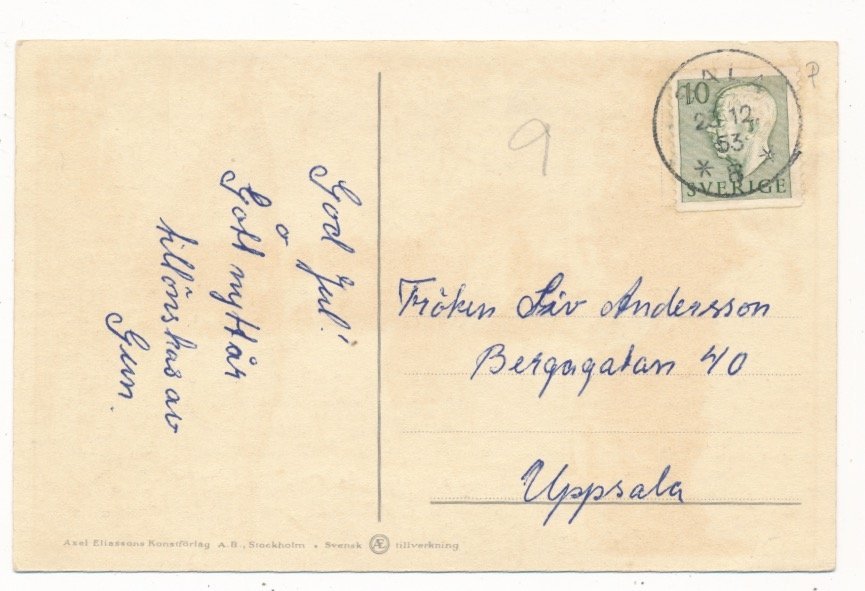 God Jul!
o
Gott nytt år
tillönskas av
Gun.
9
P
10
SALA
23 12
53
* B *
SVERIGE
Fröken Siv Andersson
Bergagatan 40
Uppsala
Axel Eliassons Konstförlag A.B., Stockholm • Svensk Æ tillverkning